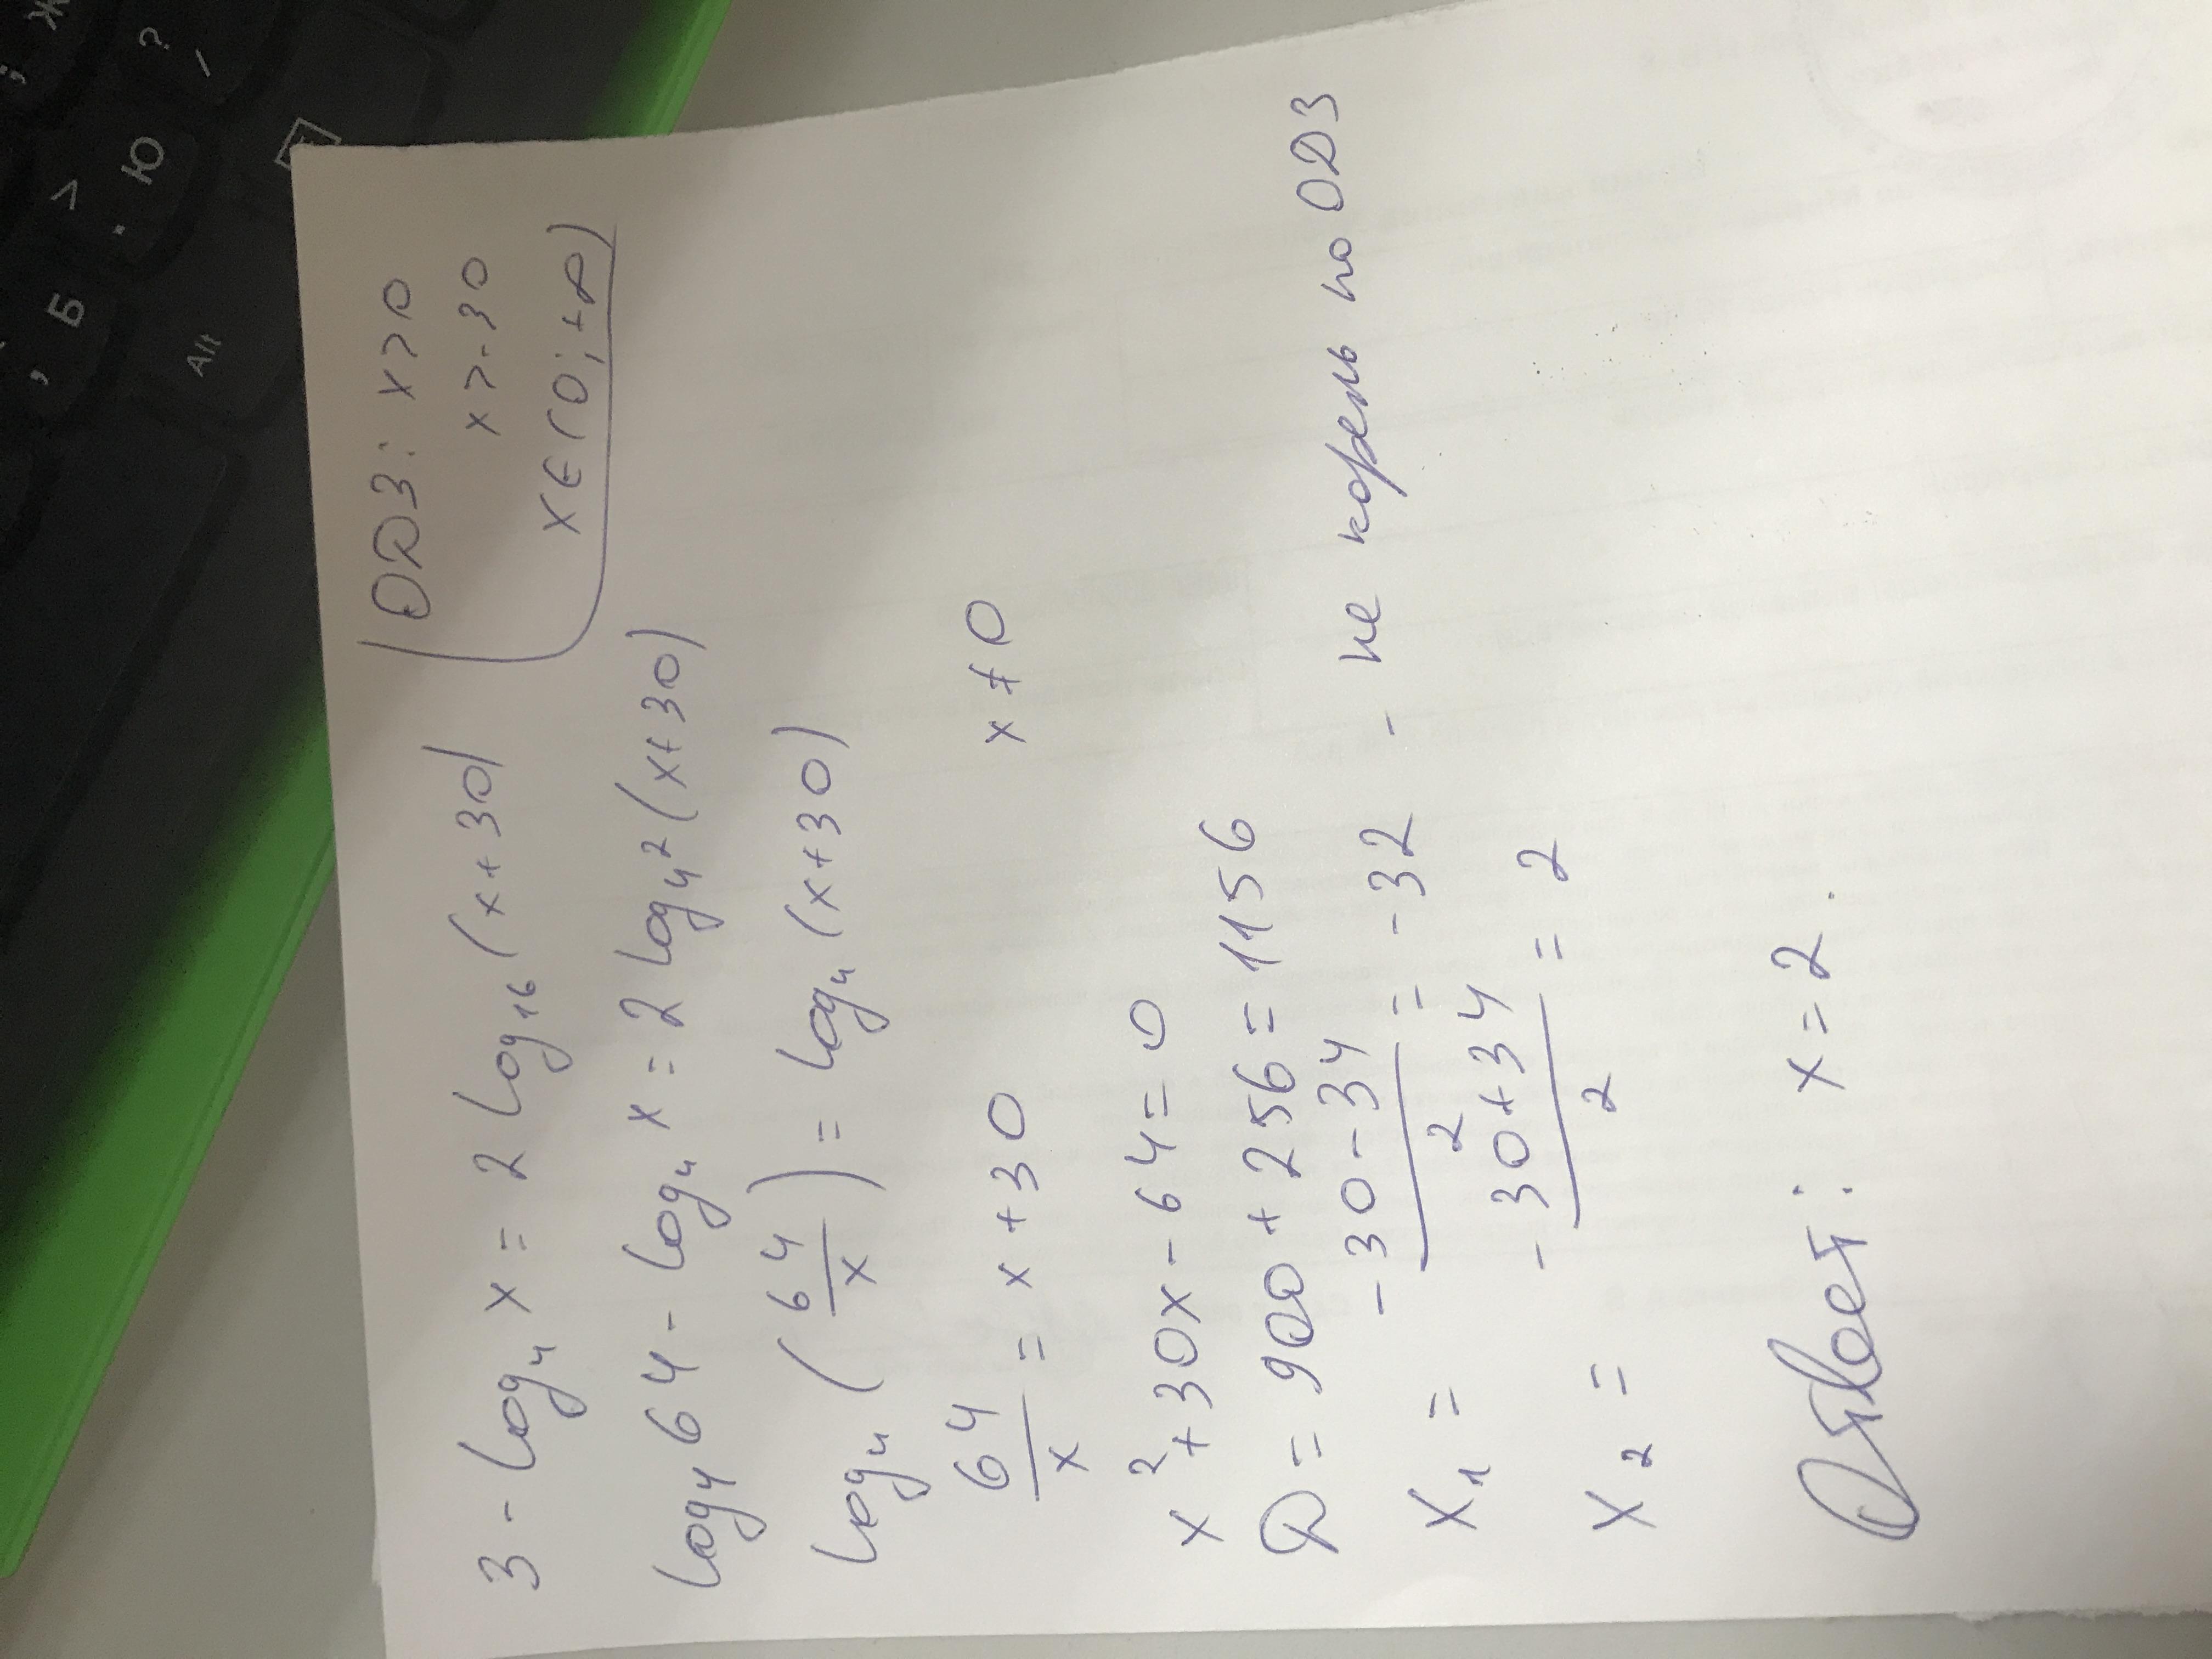 3 - log₄ x = 2 log₁₆ (x+30)
ОДЗ: x > 0
x > -30
x ∈ (0; +∞)
log₄ 64 - log₄ x = 2 log₄² (x+30)
log₄ (64/x) = log₄ (x+30)
64/x = x+30 x ≠ 0
x² + 30x - 64 = 0
D = 900 + 256 = 1156
x₁ = (-30-34)/2 = -32 - не корень по ОДЗ
x₂ = (-30+34)/2 = 2
Ответ: x = 2.
; Ж
? /
> . Ю
, Б
Alt